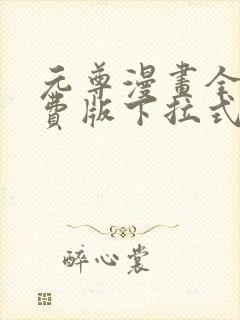 元尊漫畫全
費版下拉式
醉心裳